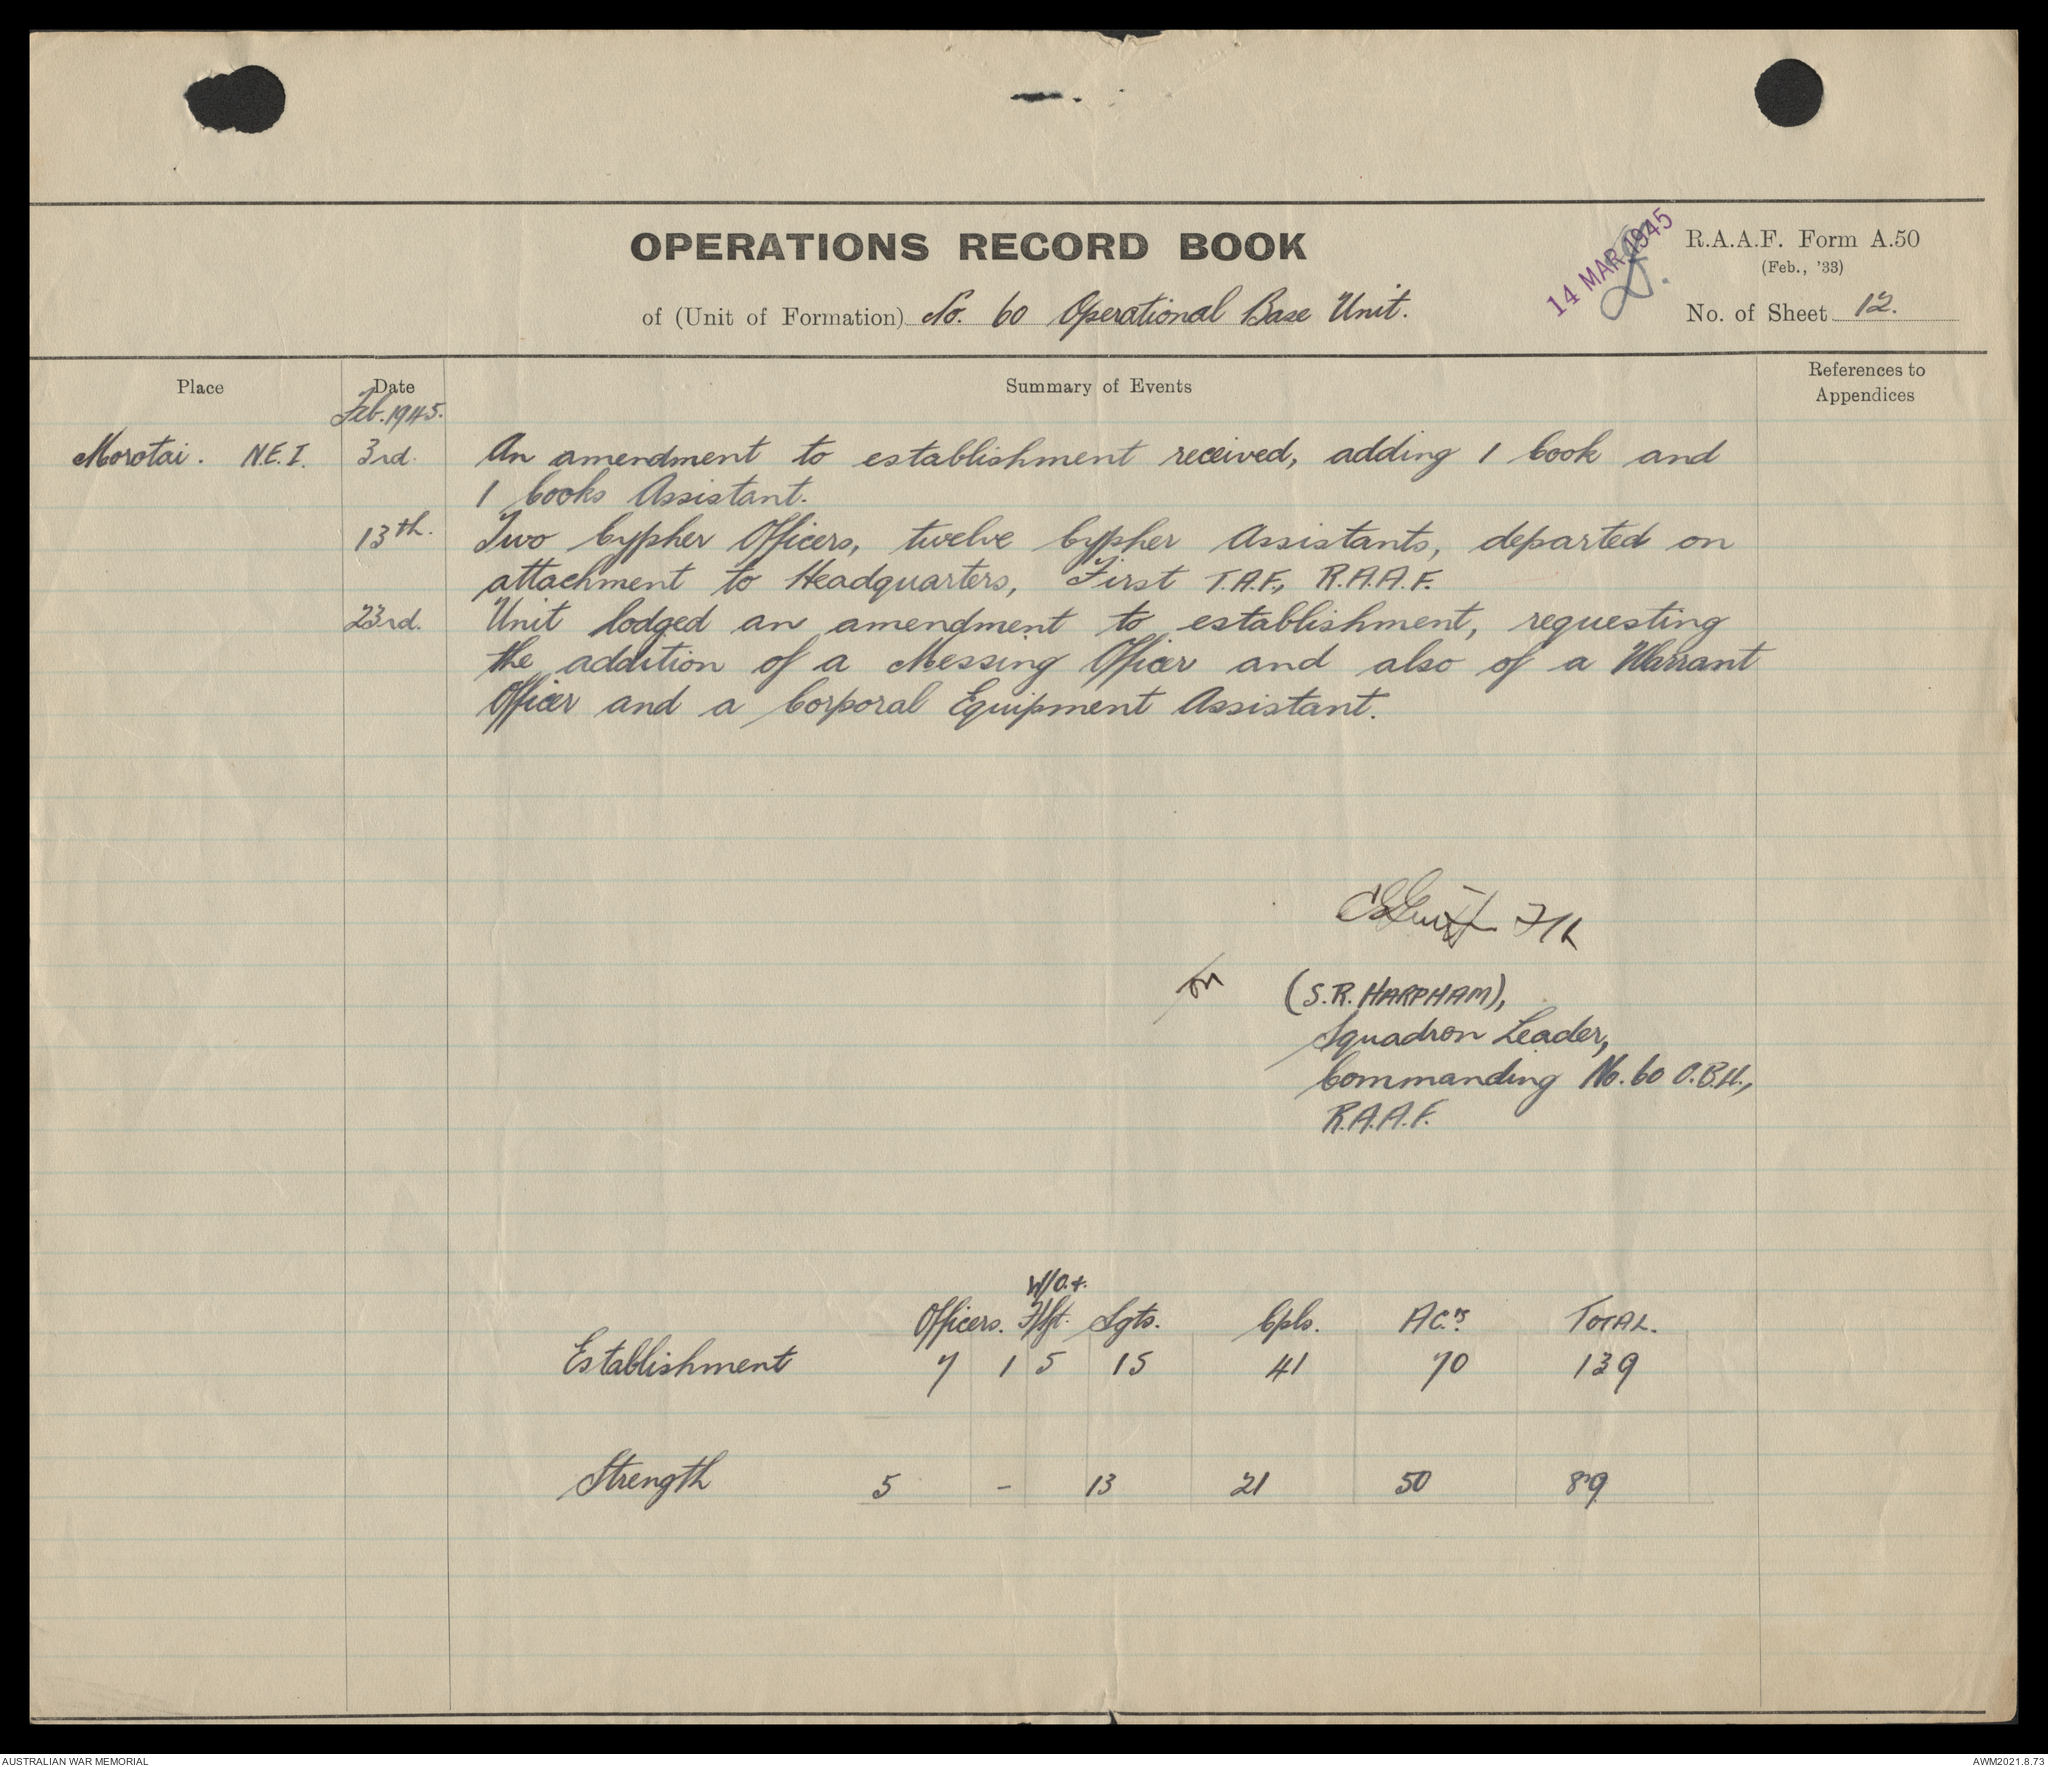 OPERATIONS RECORD BOOK
14 MAR 1945
R.A.A.F. Form A.50
(Feb., '33)
of (Unit of Formation) No. 60 Operational Base Unit.
No. of Sheet 12.
Place Date Summary of Events References to Appendices
Feb. 1945.
Morotai. N.E.I. 3rd. An amendment to establishment received, adding 1 Cook and
1 Cooks Assistant.
13th. Two Cypher Officers, twelve Cypher Assistants, departed on
attachment to Headquarters, First T.A.F., R.A.A.F.
23rd. Unit lodged an amendment to establishment, requesting
the addition of a Messing Officer and also of a Warrant
Officer and a Corporal Equipment Assistant.
for (S.R. HARPHAM),
Squadron Leader,
Commanding No. 60 O.B.U.,
R.A.A.F.
W/O. +
Officers. F/Sgt. Sgts. Cpls. AC's TOTAL.
Establishment 7 1 5 15 41 70 139
Strength 5 - 13 21 50 89
AUSTRALIAN WAR MEMORIAL
AWM2021.8.73